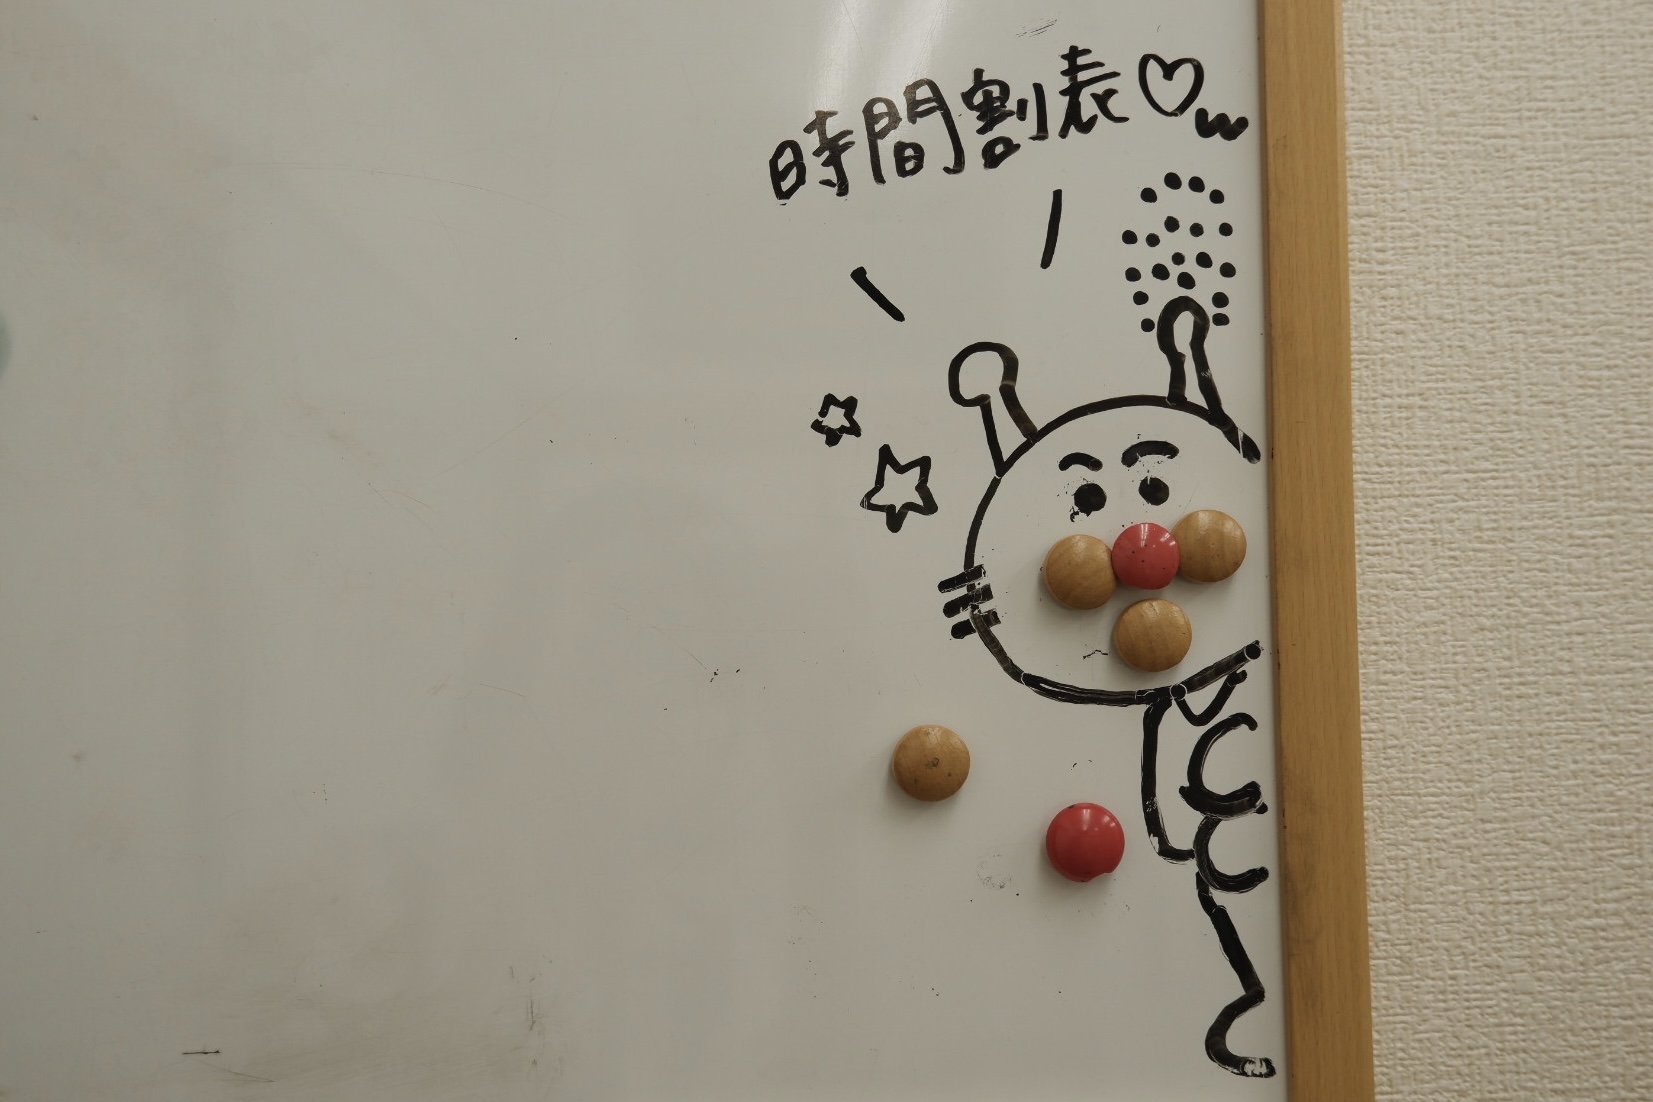 時間割表♡w